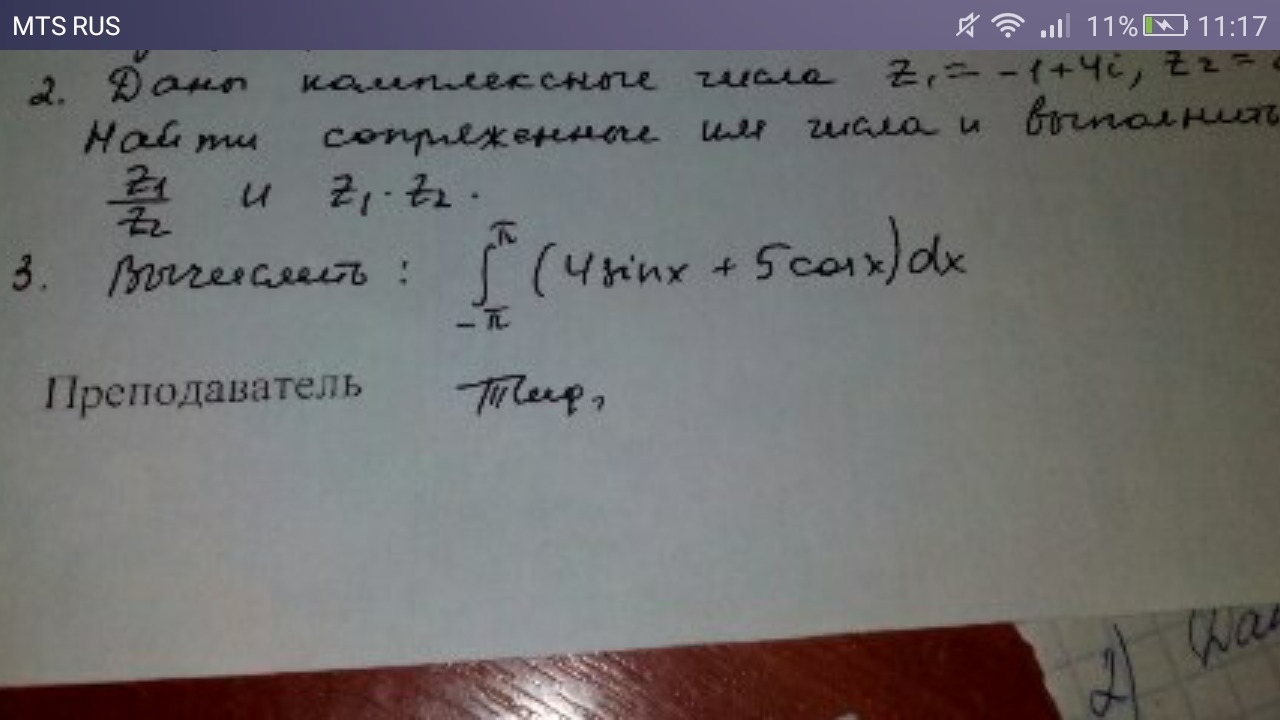 MTS RUS 11% 11:17
2. Даны комплексные числа z₁ = -1+4i, z₂ =
Найти сопряженные им числа и выполнить
z₁/z₂ и z₁ · z₂.
3. Вычислить: ∫_{-π}^{π} (4sinx + 5cosx)dx
Преподаватель
2) Дан